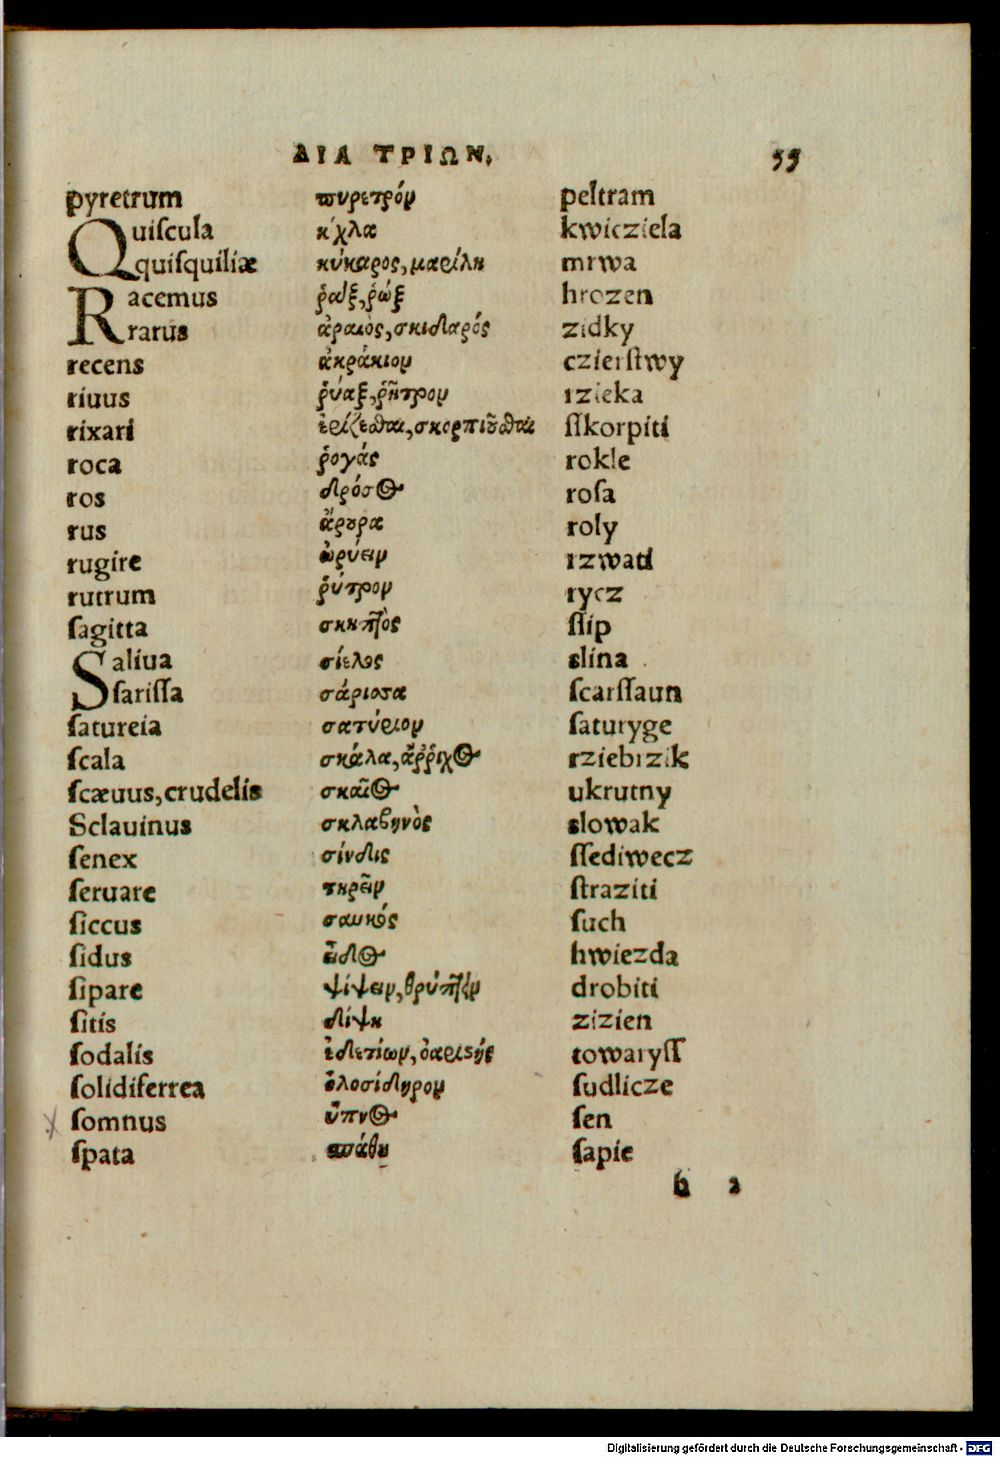 ΔΙΑ ΤΡΙΩΝ, 55
pyretrum πυρετρόν peltram
Quiſcula κίχλα kwicziela
quiſquiliæ κύκαρος, μαρίλη mrwa
Racemus ῥαὶξ, ῥώξ hrozen
rarus ἀραιὸς, σκιδαρός zidky
recens ἀκράκιον czierſtwy
riuus ῥύαξ, ῥῆτρον rzieka
rixari ἐρίζεσθαι, σκορπιοῦσθαι ſſkorpiti
roca ῥογάς rokle
ros δρόσος roſa
rus ἄρουρα roly
rugire ὠρύειν rzwati
rutrum ῥύτρον rycz
ſagitta σκηπτὸς ſſip
Saliua σίελος slina
ſariſſa σάρισσα ſcarſſaun
ſatureia σατύριον ſaturyge
ſcala σκάλα, ἄῤῥιχος rziebrzik
ſcæuus, crudelis σκαῖος ukrutny
Sclauinus σκλαβηνὸς slowak
ſenex σίνδις ſſediwecz
ſeruare τηρεῖν ſtraziti
ſiccus σαυκός ſuch
ſidus εἶδος hwiezda
ſipare ψίψειν, θρύπτειν drobiti
ſitis δίψη zizien
ſodalis ἐδετίων, ὀαριστής towaryſſ
ſolidiferrea ὁλοσίδηρον ſudlicze
ſomnus ὕπνος ſen
ſpata σπάθη ſapie
h 2
Digitalisierung gefördert durch die Deutsche Forschungsgemeinschaft - DFG